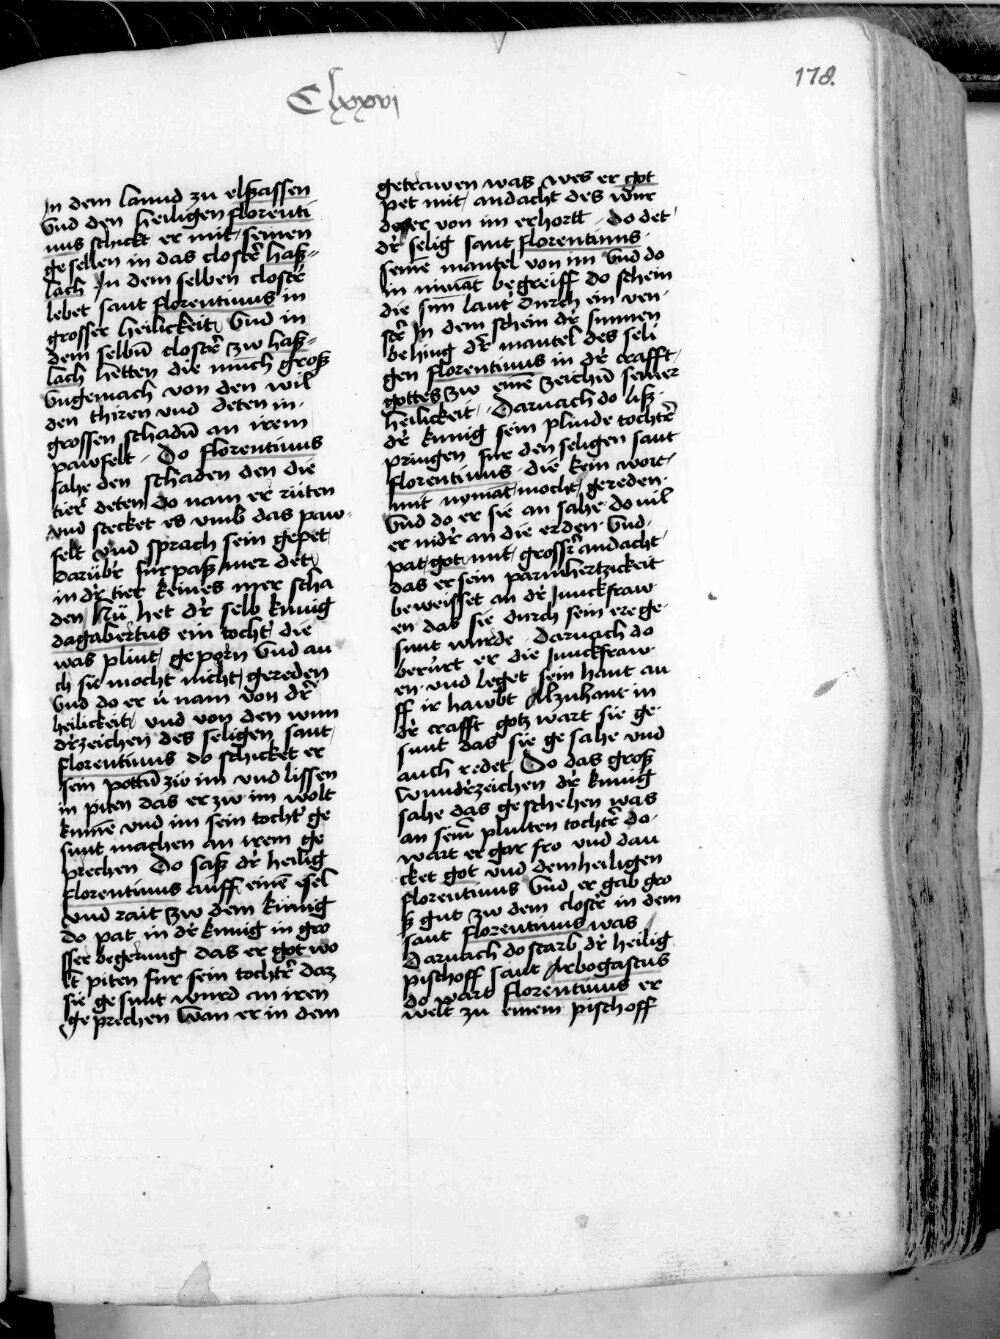 178.
Clxxvi
In dem lannd zu elsassen
vnd den heiligen florenti
nus schickt er mit seinen
gesellen in das closter haß=
lach In dem selben closter
lebet sant florentinus in
grosser heilickeit vnd in
dem selbn̄ closter zw haß=
lach hetten die munch groß
vngemach von den wil
den thiren vnd deten in
grossen schadn̄ an irem
pawfelt · Do florentinus
sahe den schaden den die
tier deten do nam er rüten
vnd stecket es vmb das paw·
felt vnd sprach sein gepet
darüber fürpaß mer det
in der tier keines mer scha
den Nü het der selb kunig
dagabertus ein tochter die
was plint geporn vnd au
ch sie mocht nicht gereden
vnd do er v̈nam von der
heilickeit vnd von den wun
derzeichen des seligen sant
florentinus do schicket er
sein pottn̄ zw im vnd lissen
in piten das er zw im wolt
kumē vnd im sein tochter ge
sunt machen an irem ge
prechen Do saß der heilig
florentinus auff einē esel
vnd rait zw dem künig
do pat in der kunig in gro
sser begerung das er got wo
lt piten fur sein tochter daz
sie gesunt wurd an iren
geprechen wan er in dem
getrawen was wes er got
pet mit andacht des wur
d er von im erhortt · do det
der selig sant florentinus ·
seinē mantel von im vnd do
in nimāt begreiff do schein
die sun̄ laut durch ein ven·
ster In dem schein der sunnen
behing der mantel des seli
gen florentinus in der crafft
gottes zw einē zeichn̄ seiner
heilickeit · Darnach do liß
der kunig sein plinde tochter
pringen fur den seligen sant
florentinus · die kein wort
mit nymāt mocht gereden·
vnd do er sie an sahe do vil
er nider an die erden · vnd·
pat got mit grosser andacht
das er sein parmhertzickeit
beweisset an der Junckfraw
en das sie durch sein ere ge·
sunt wurde · Darnach do
berurt er die Junckfraw·
en vnd leget sein hant au
ff ir hawbt Alzuhant in
der crafft gotz wart sie ge·
sunt das sie gesahe vnd
auch redet Do das groß
wunderzeichen der kunig
sahe das geschehen was
an seīn plinten tochter do·
wart er gar fro vnd dan
cket got vnd dem heiligen
florentinus vnd er gab gro
ß gut zw dem closter in dem
sant florentinus was
Darnach do starb der heilig
pischoff sant Arbogastus
do wart florentinus er
welt zu einem pischoff